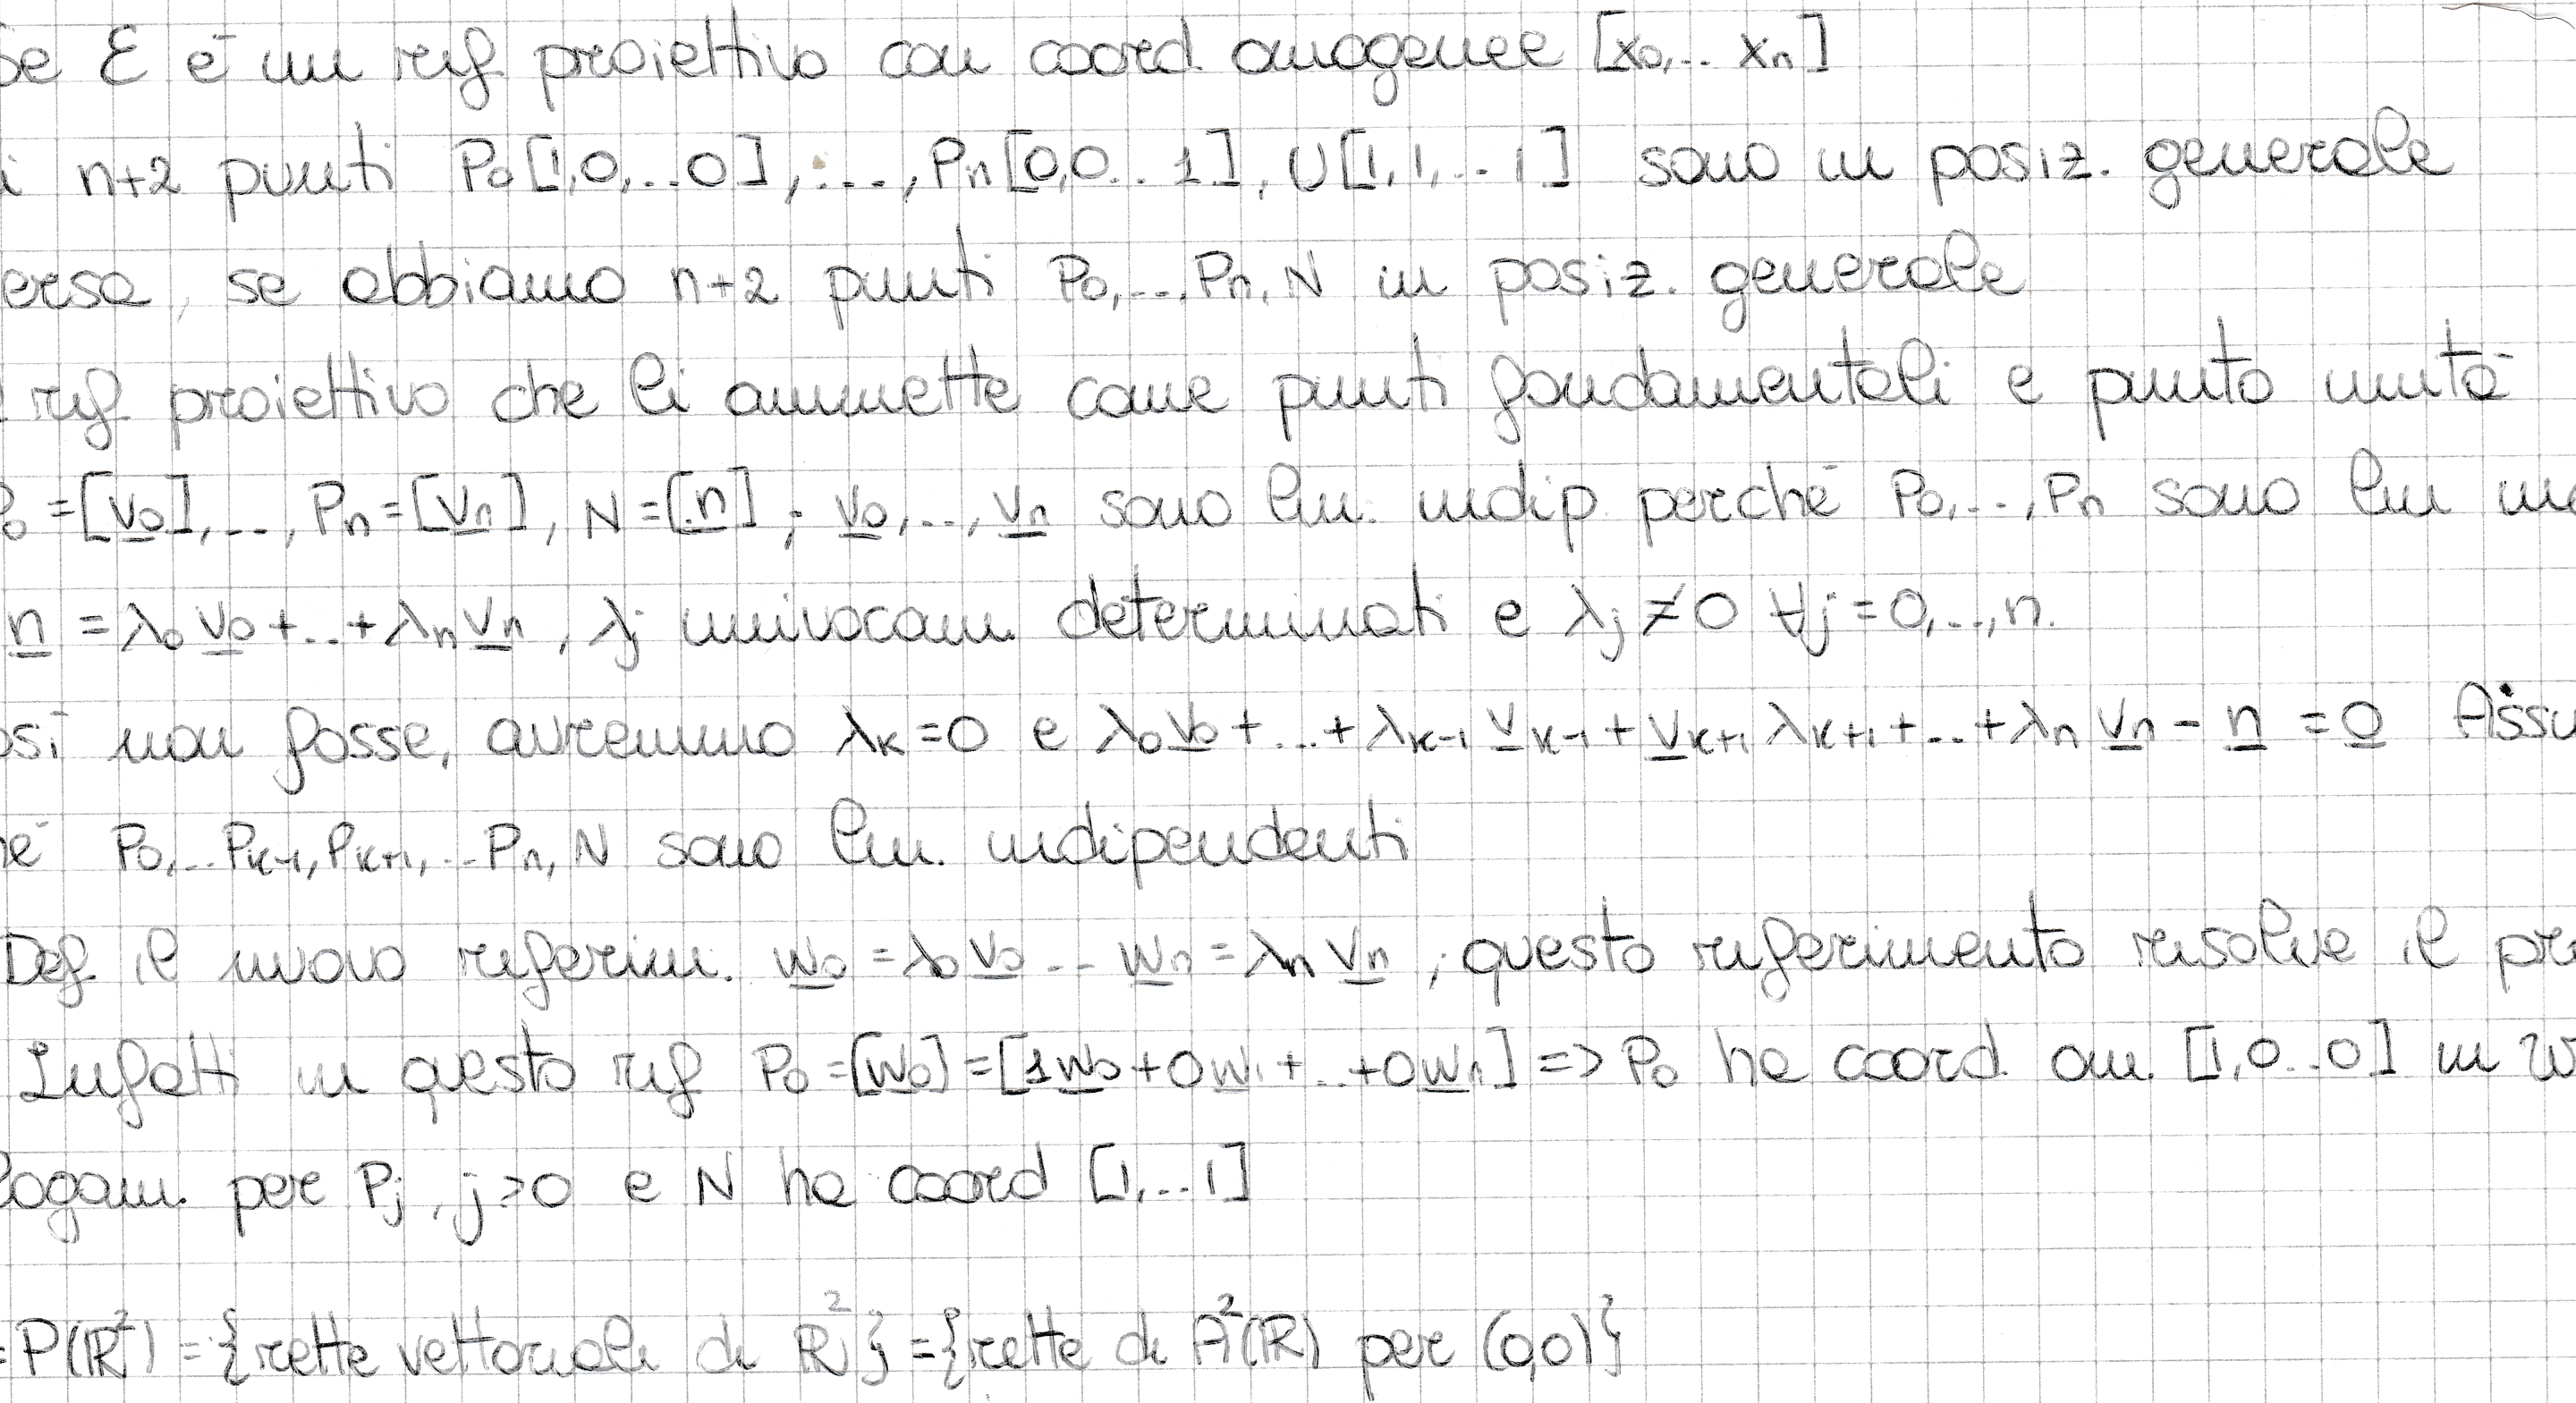 Se E è un rif. proiettivo con coord. omogenee [x₀,.. xₙ]
i n+2 punti P₀[1,0,..0],....,Pₙ[0,0..1], U[1,1,..1] sono in posiz. generale
ersa, se abbiamo n+2 punti P₀,...,Pₙ,N in posiz. generale
rif. proiettivo che li ammette come punti fondamentali e punto unità
P₀=[v₀],..,Pₙ=[vₙ], N=[n]; v₀,..,vₙ sono lin. indip. perché P₀,..,Pₙ sono lin ind
n = λ₀v₀+..+λₙvₙ, λⱼ univocam. determinati e λⱼ≠0 ∀j=0,..,n.
osì non fosse, avremmo λₖ=0 e λ₀v₀+...+λₖ₋₁vₖ₋₁+vₖ₊₁λₖ₊₁+..+λₙvₙ-n=0 Assu
hé P₀,..Pₖ₋₁,Pₖ₊₁,..Pₙ,N sono lin. indipendenti
Def. il nuovo riferim. w₀=λ₀v₀..wₙ=λₙvₙ, questo riferimento risolve il pro
Infatti in questo rif P₀=[w₀]=[1w₀+0w₁+..+0wₙ] => P₀ ha coord. om. [1,0..0] in W
logam. per Pⱼ, j>0 e N ha coord [1,..1]
=P(R²)={rette vettoriali di R²}={rette di A²(R) per (0,0)}